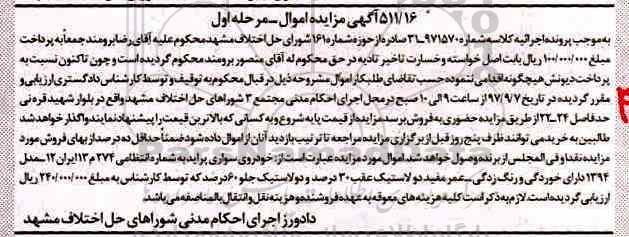 ۵۱۱/۱۶ آگهی مزایده اموال ــ مرحله اول
به موجب پرونده اجرائیه کلاسه شماره ۹۷۱۵۷۰ــ۳۱ صادره از حوزه شماره ۱۶۱ شورای حل اختلاف مشهد محکوم علیه آقای رضا برومند جمعاً به پرداخت
مبلغ ۱۰۰/۰۰۰/۰۰۰ ریال بابت اصل خواسته و خسارت تاخیر تادیه در حق محکوم له آقای منصور برومند محکوم گردیده است و چون تاکنون نسبت به
پرداخت دیونش هیچگونه اقدامی ننموده حسب تقاضای طلبکار اموال مشروحه ذیل در قبال محکوم به توقیف و توسط کارشناس دادگستری ارزیابی و
مقرر گردیده در تاریخ ۹۷/۹/۷ از ساعت ۹ الی ۱۰ صبح در محل اجرای احکام مدنی مجتمع ۳ شوراهای حل اختلاف مشهد واقع در بلوار شهید قره نی
حد فاصل ۲۴ــ۲۲ از طریق مزایده حضوری به فروش برسد مزایده از قیمت پایه شروع و به کسانی که بالاترین قیمت را پیشنهاد نمایند واگذار خواهد شد
طالبین به خرید می توانند ظرف پنج روز قبل از برگزاری مزایده مراجعه تا ترتیب بازدید آنان از اموال داده شود ضمناً حداقل ده درصد از بهای فروش مورد
مزایده نقدا و فی المجلس از برنده وصول خواهد شد. اموال مورد مزایده عبارت است از: خودروی سواری پراید به شماره انتظامی ۲۷۴ م ۱۳ ایران ۱۲ــ مدل
۱۳۹۴ دارای خوردگی و رنگ زدگی ــ عمر مفید دو لاستیک عقب ۳۰ درصد و دو لاستیک جلو ۶۰ درصد که توسط کارشناس به مبلغ ۲۴۰/۰۰۰/۰۰۰ ریال
ارزیابی گردیده است. لازم به ذکر است کلیه هزینه های معوقه به عهده فروشنده و هزینه نقل و انتقال بالمناصفه می باشد.
دادورز اجرای احکام مدنی شوراهای حل اختلاف مشهد